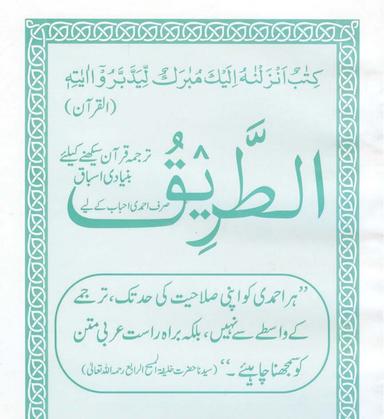 كِتٰبٌ اَنْزَلْنٰهُ اِلَيْكَ مُبٰرَكٌ لِّيَدَّبَّرُوْٓا اٰيٰتِهٖ
(القرآن)
ترجمہ قرآن سیکھنے کیلئے
بنیادی اسباق
صرف احمدی احباب کے لیے
الطَّرِيقُ
”ہر احمدی کو اپنی صلاحیت کی حد تک، ترجمے
کے واسطے سے نہیں، بلکہ براہ راست عربی متن
کو سمجھنا چاہیئے۔“ (سیدنا حضرت خلیفۃ المسیح الرابع رحمہ اللہ تعالیٰ)